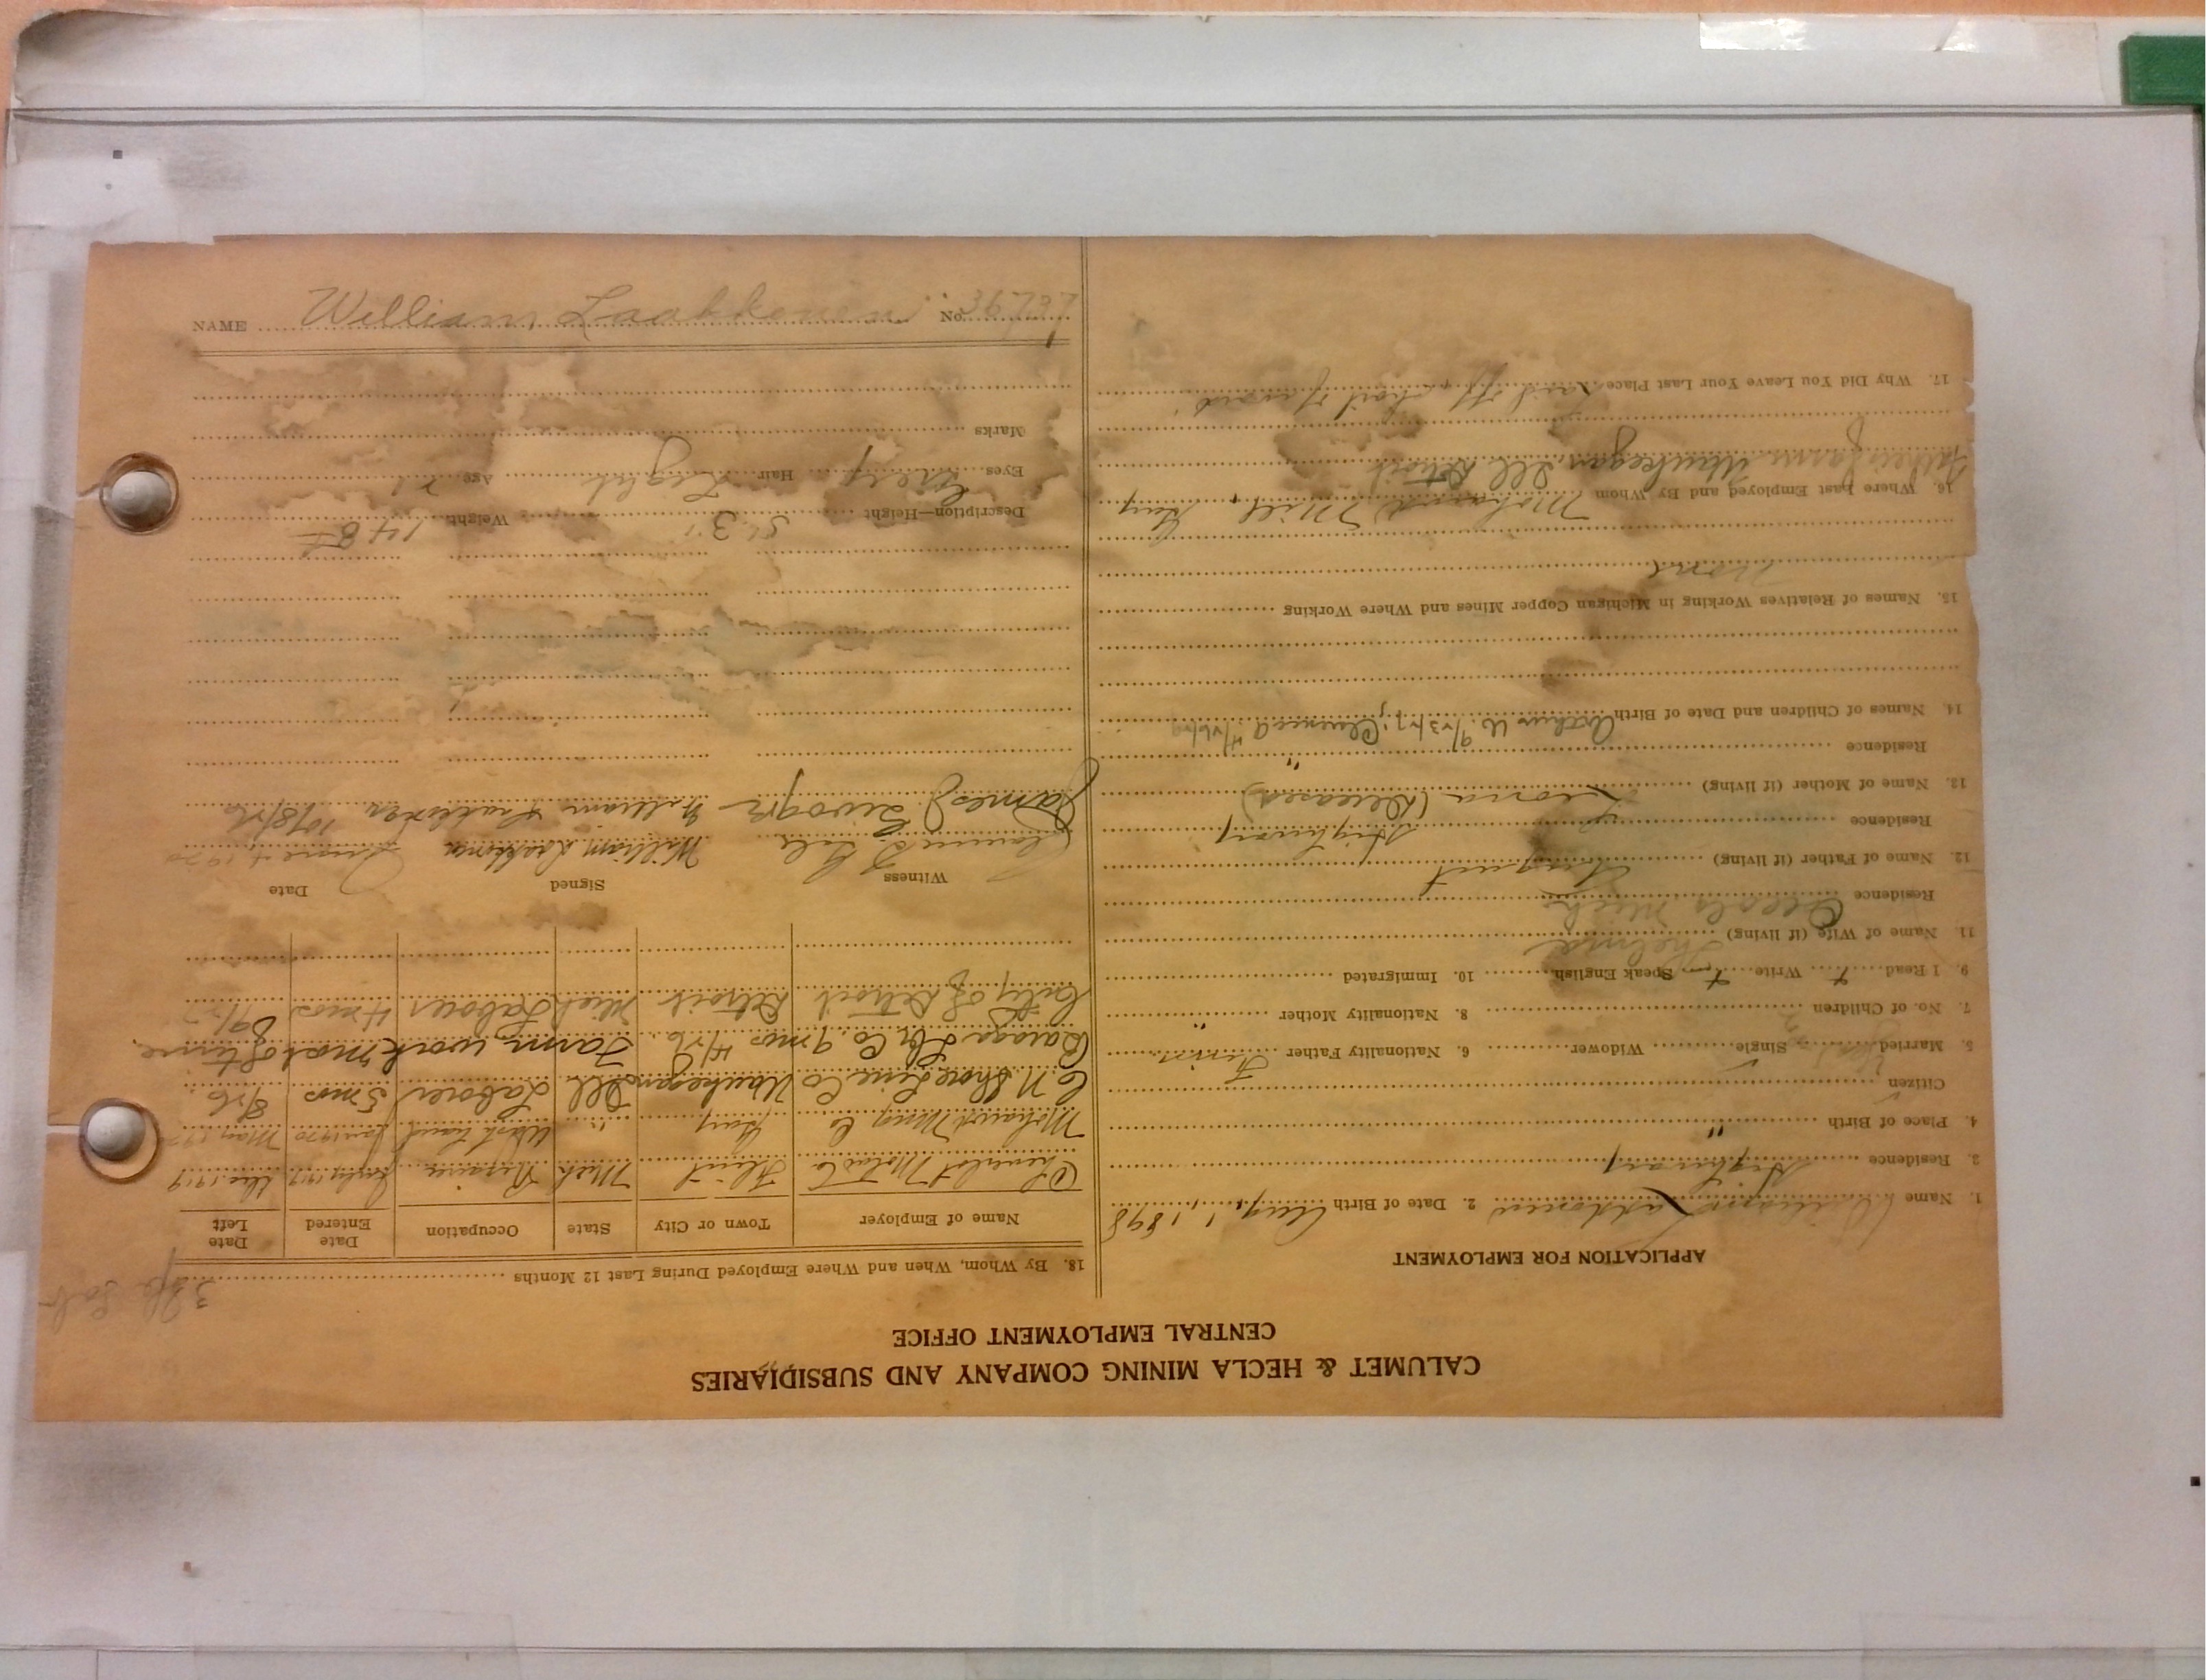 CALUMET & HECLA MINING COMPANY AND SUBSIDIARIES
CENTRAL EMPLOYMENT OFFICE
APPLICATION FOR EMPLOYMENT
1. Name William Laakkonen 2. Date of Birth Aug. 1, 1898
3. Residence Highway
4. Place of Birth "
Citizen
5. Married Single Widower 6. Nationality Father Finn
7. No. of Children 8. Nationality Mother "
9. I Read Write Speak English 10. Immigrated
11. Name of Wife (if living) Thelma
Residence Mich
12. Name of Father (if living) August
Residence Highway
13. Name of Mother (if living) (Deceased)
Residence "
14. Names of Children and Date of Birth Arthur W. 9/23/27; Clarence 4/26/29
15. Names of Relatives Working in Michigan Copper Mines and Where Working
None
16. Where Last Employed and By Whom Mohawk Mill, Gay
Farm Waukegan Ill Detroit
17. Why Did You Leave Your Last Place Laid off
18. By Whom, When and Where Employed During Last 12 Months
Name of Employer Town or City State Occupation Date Entered Date Left
Chevrolet Motor Co Flint Mich July 1919 Dec. 1919
Mohawk Mng Co Gay " Wash hand Jan 1920 May 1920
C N Shore Line Co Waukegan Ill Laborer 5 mos 8/26.
Baraga Lbr Co. 9 mos 4/26. Farm work most of time.
City of Detroit Detroit Mich Labour 4 mos
Witness Signed Date
William Laakkonen June 4 1920
James J. William Laakkonen 10/8/26
Description—Height 5'.3" Weight 148
Eyes Grey Hair Light Age
Marks
NAME William Laakkonen No. 36737